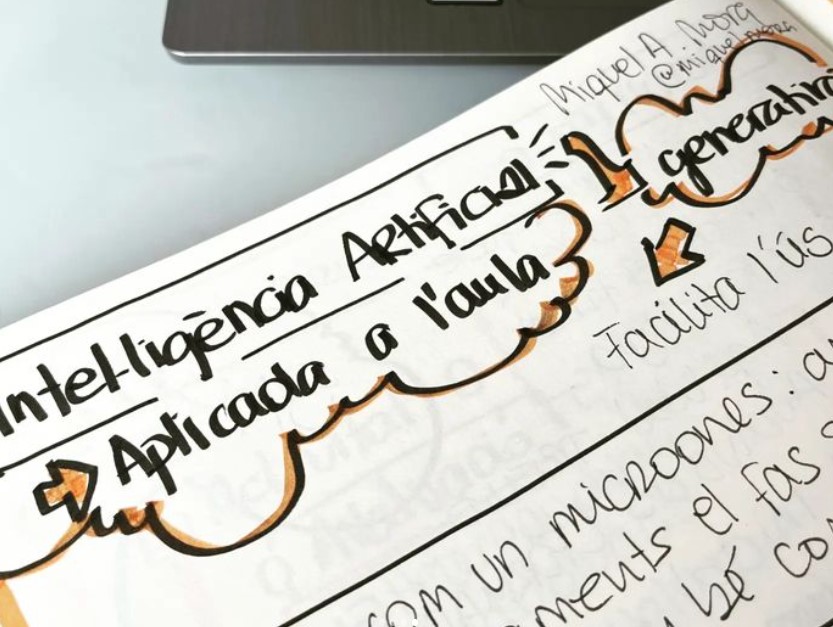 Miquel A. Mora
@miquelmora
Intel·ligència Artificial
Aplicada a l'aula
generativa
Facilita l'ús
com un microones:
el fas
bé